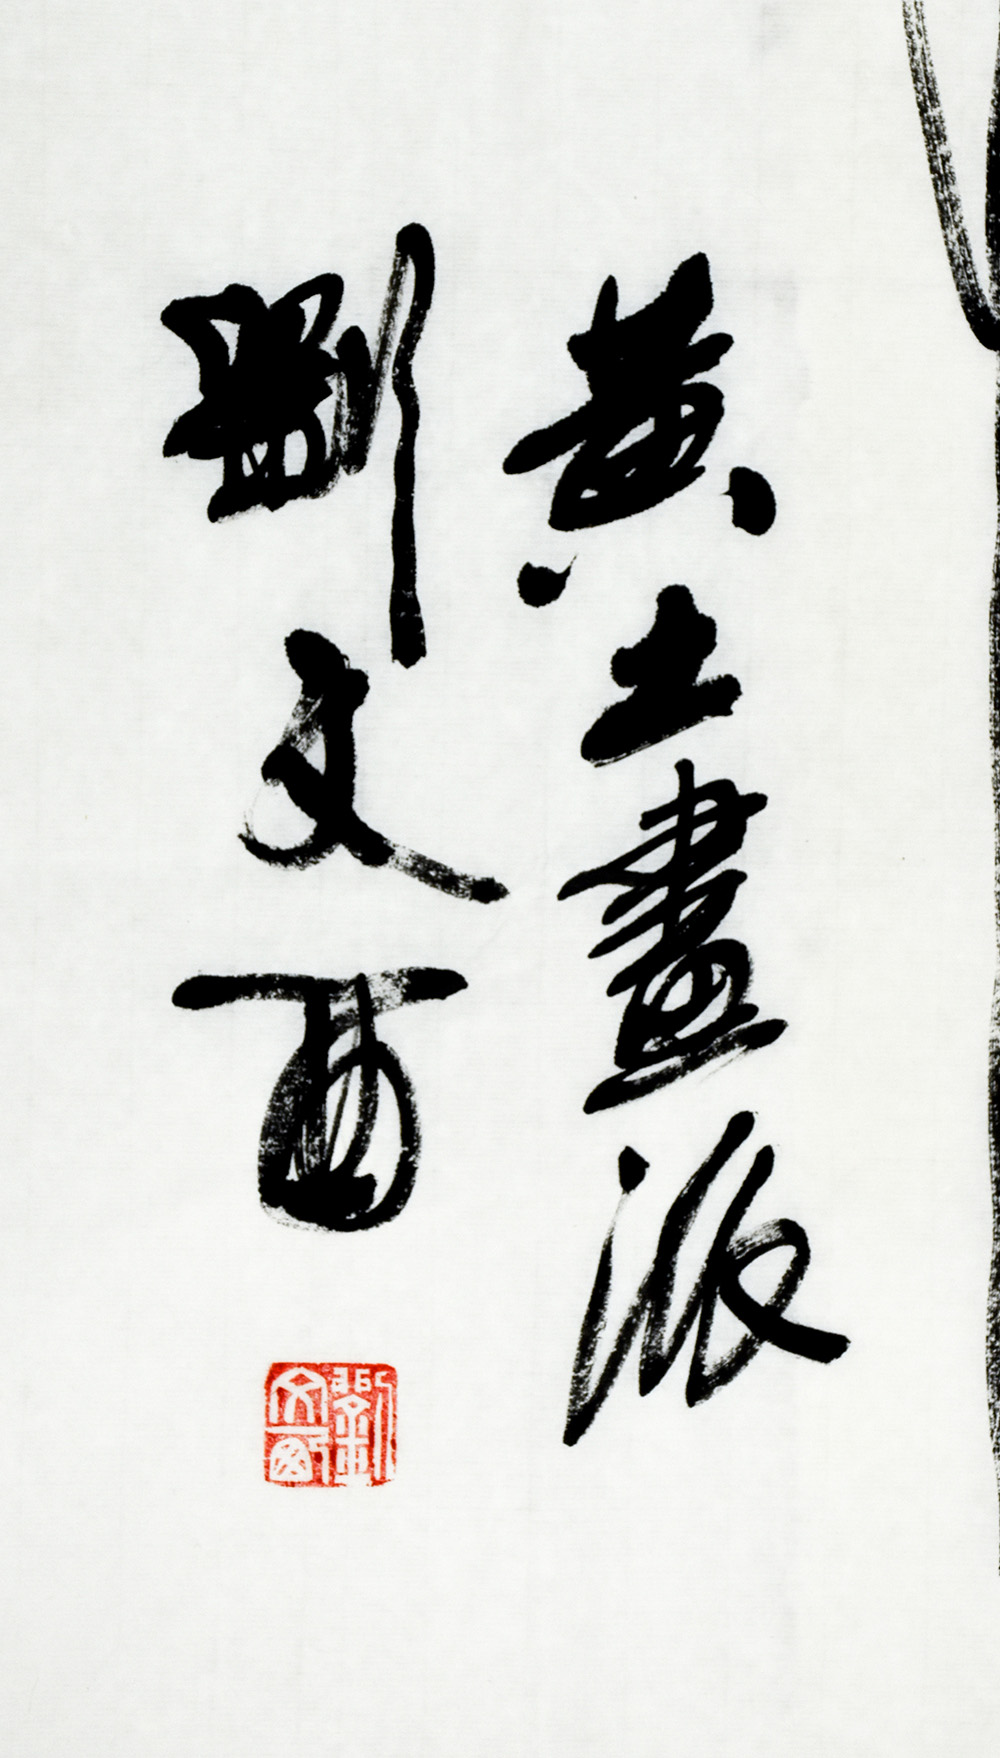 黃土畫派
劉文西
劉文西